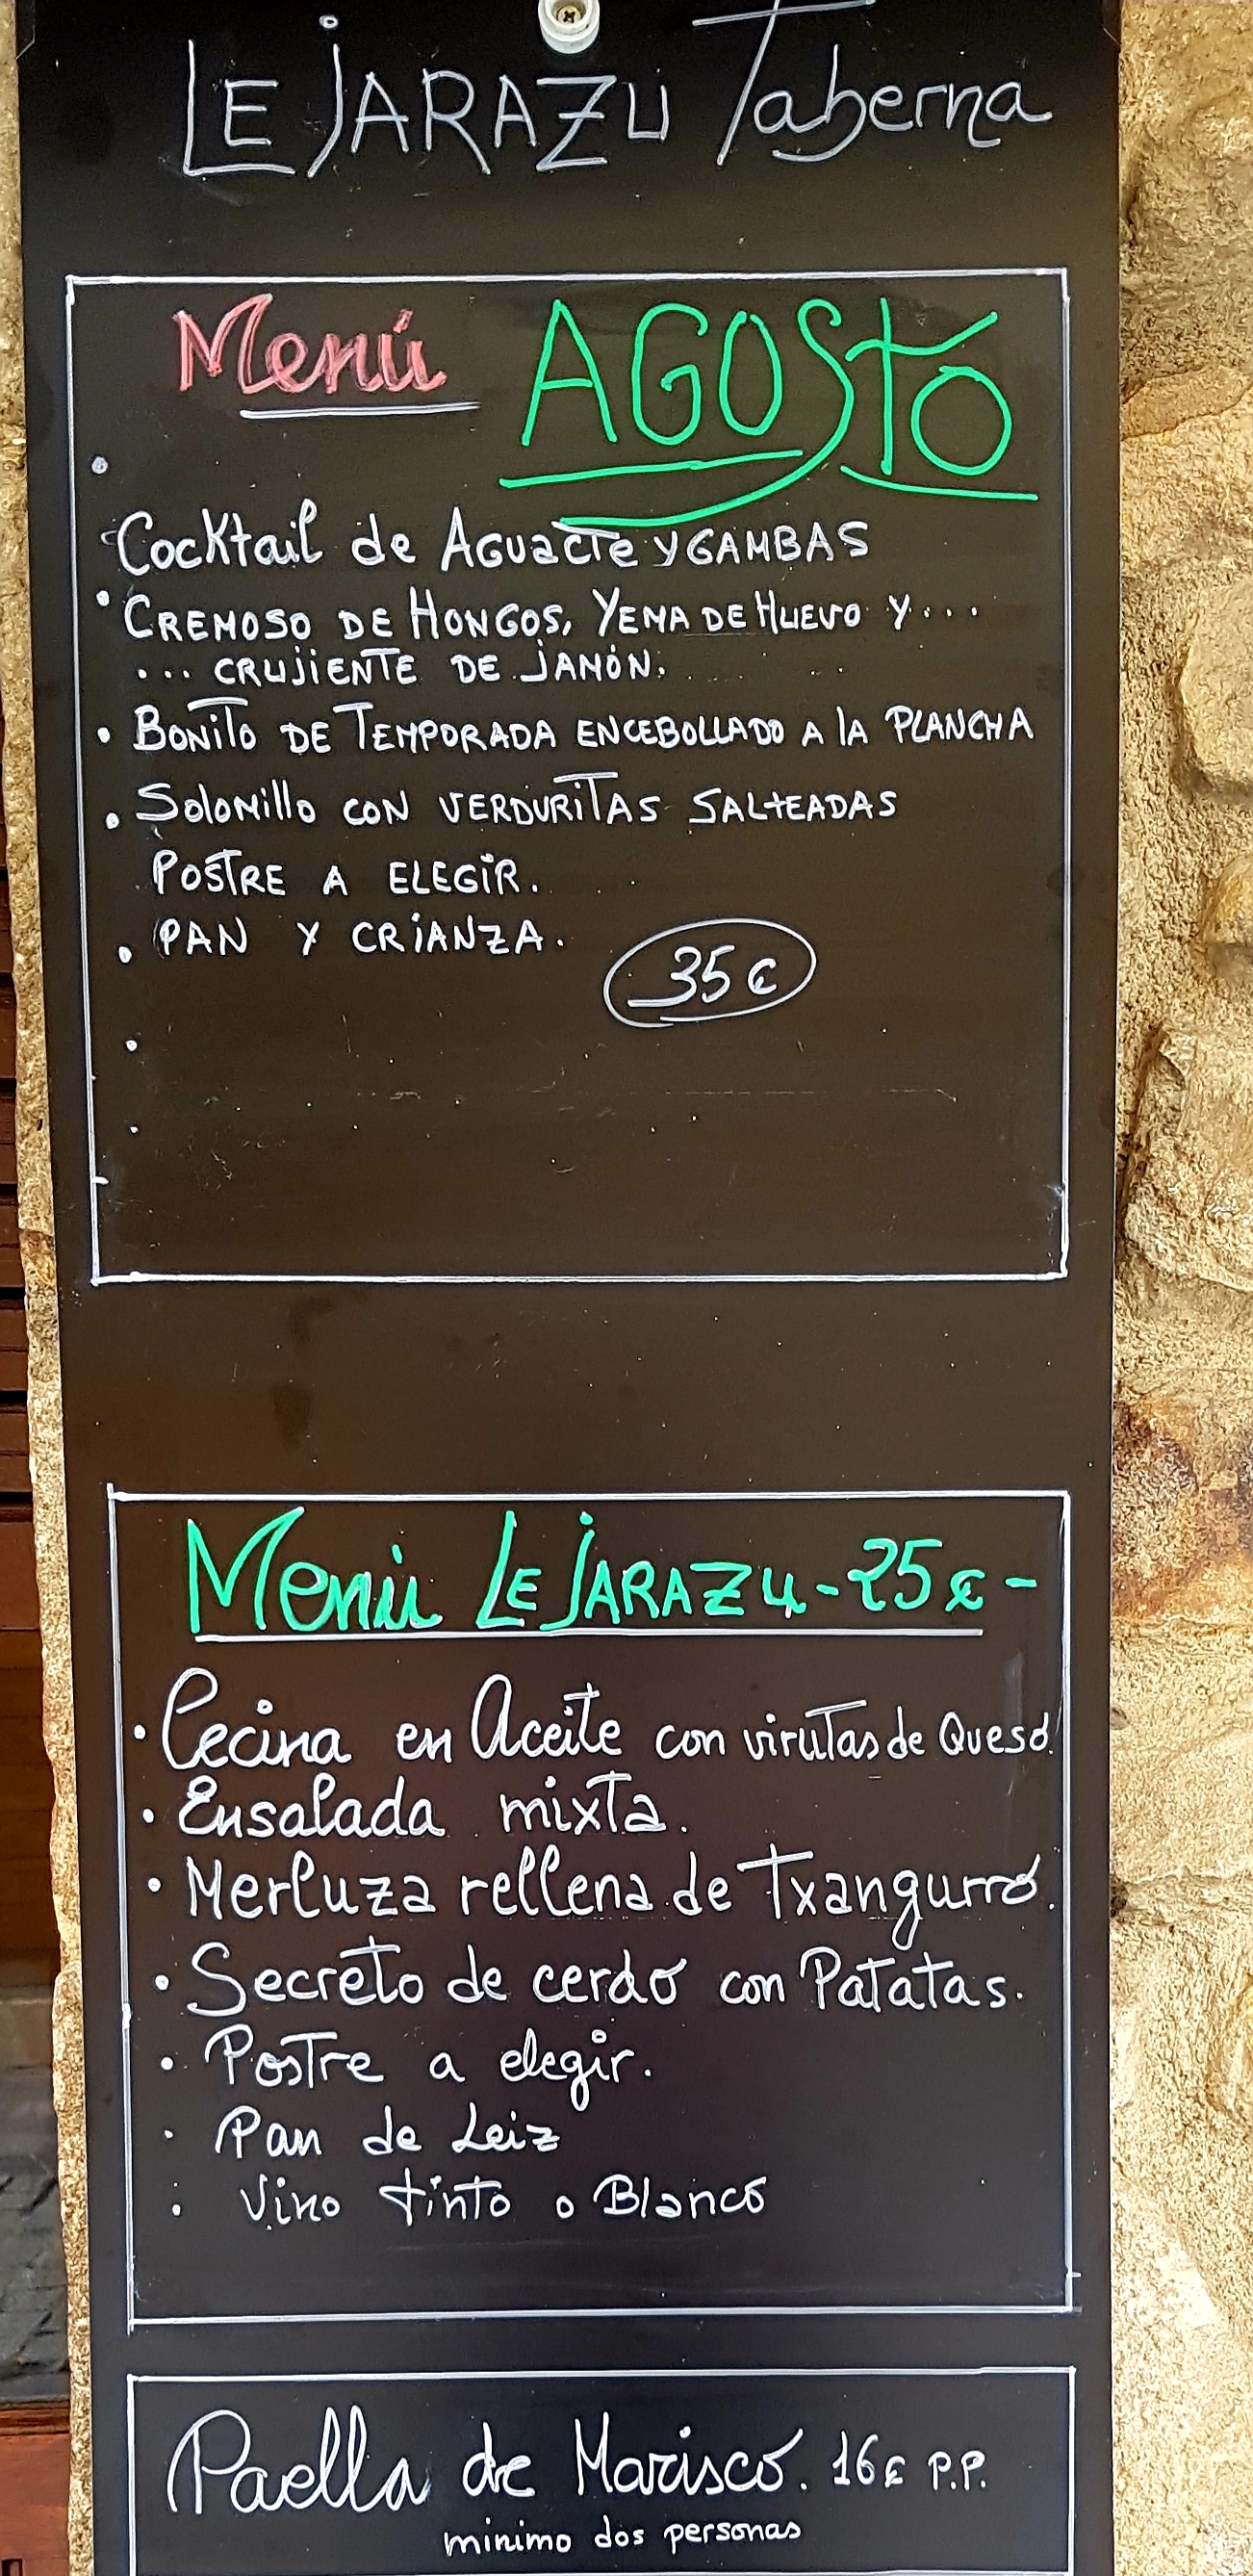 LEJARAZU Taberna
Menú AGOSTO
Cocktail de AGUACTE Y GAMBAS
• CREMOSO DE HONGOS, YEMA DE HUEVO Y...
... CRUJIENTE DE JAMÓN.
• BONITO DE TEMPORADA ENCEBOLLADO A LA PLANCHA
• SOLOMILLO CON VERDURITAS SALTEADAS
POSTRE A ELEGIR.
• PAN Y CRIANZA.
35€
Menú LEJARAZU - 25€ -
• Cecina en Aceite con virutas de Queso.
• Ensalada mixta.
• Merluza rellena de Txangurro.
• Secreto de cerdo con Patatas.
• Postre a elegir.
• Pan de Leiz
• Vino tinto o Blanco
Paella de Marisco. 16€ P.P.
minimo dos personas